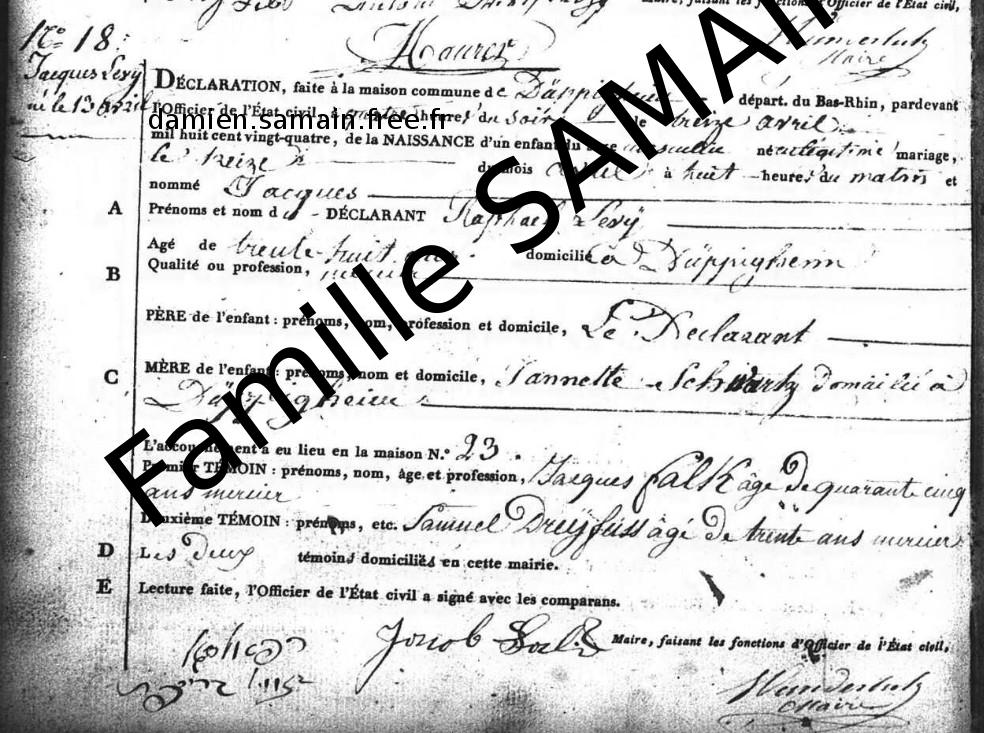 Maire, faisant les fonctions d'Officier de l'État civil,
N.° 18.
Maurer
Wunderlich
Maire
Jacques Levy
né le 13 avril
DÉCLARATION, faite à la maison commune de Düppigheim départ. du Bas-Rhin, pardevant
l'Officier de l'État civil, à quatre heures du soir le treize avril
damien.samain.free.fr
mil huit cent vingt-quatre, de la NAISSANCE d'un enfant du sexe masculin né en légitime mariage,
le treize du mois d'avril à huit heures du matin et
nommé Jacques
A Prénoms et nom du DÉCLARANT Raphael Levÿ
Agé de trente-huit ans domicilié à Düppigheim
B Qualité ou profession,
PÈRE de l'enfant : prénoms, nom, profession et domicile, Le Declarant
C MÈRE de l'enfant : prénoms, nom et domicile, Jannette Schwartz domicilié à
Düppigheim
L'accouchement a eu lieu en la maison N.° 23.
Premier TÉMOIN : prénoms, nom, âge et profession, Jacques Falk âgé de quarante cinq
ans mercier
Deuxième TÉMOIN : prénoms, etc. Samuel Dreÿfuss âgé de trente ans mercier
D Les deux témoins domiciliés en cette mairie.
E Lecture faite, l'Officier de l'État civil a signé avec les comparans.
Maire, faisant les fonctions d'Officier de l'État civil,
Maire
Famille SAMAIN